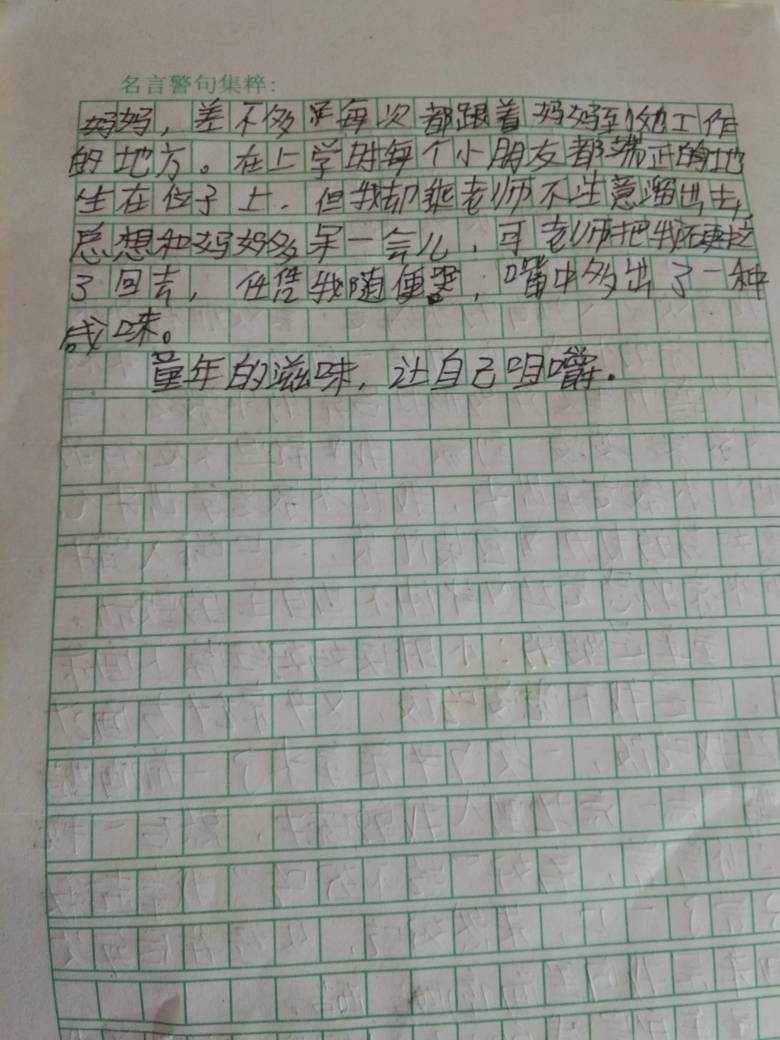 名言警句集粹:
妈妈，差不多是每次都跟着妈妈到她工作
的地方。在上学时每个小朋友都端正的地
坐在位子上．但我却乘老师不注意溜出去，
总想和妈妈多呆一会儿，可老师把我硬拉
了回去，任凭我随便哭，嘴中多出了一种
咸味。
童年的滋味，让自己咀嚼．